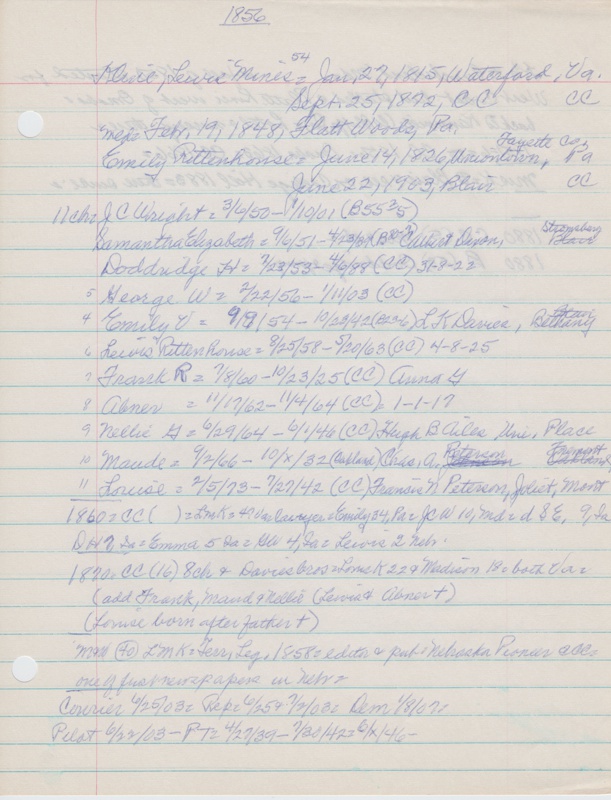 1856
54
Kline, Lewis Minis = Jan. 27, 1815, Waterford, Va.
Sept. 25, 1872, CC CC
m = Feb. 19, 1848, Flatt Woods, Pa.
Fayette Co.,
Emily Rittenhouse = June 14, 1826, Uniontown, Pa
June 22, 1903, Blair CC
11 ch = J C Wright = 3/6/50 - 9/10/01 (B55 35)
Samantha Elizabeth = 9/6/51 - Culbert Dixon, Blair
Doddridge H = 7/23/53 - 4/6/88 (CC) 31-8-22
5 George W = 2/22/56 - 1/11/03 (CC)
4 Emily V = 9/9/54 - 10/23/42 L K Davies, Bethany
6 Lewis Rittenhouse = 8/25/58 - 5/20/63 (CC) 4-8-25
7 Frank R = 7/8/60 - 10/23/25 (CC) Anna G
8 Abner = 11/17/62 - 11/4/64 (CC) = 1-1-17
9 Nellie G = 6/29/64 - 6/1/46 (CC) Hugh B Ailes Uni. Place
10 Maude = 9/2/66 - 10/x/32 (Oakland) Chas. A. Peterson Fremont
11 Louise = 2/5/73 - 7/27/42 (CC) Francis N Peterson, Joliet, Mont
1860 = CC ( ) = LmK = 42 Va = Lawyer = Emily 34, Pa = JC W 10, Md = d S E, 9, Ia
D H 7 Ia = Emma 5 Ia = GW 4, Ia = Lewis 2 Neb.
1870 = CC (16) 8ch & Davies bros = Lome K 22 & Madison 18 = both Va =
(add Frank, Maud & Nellie (Lewis & Abner +)
(Louise born after father +)
MM (70) LMK = Terr. Leg. 1858 = editor & pub = Nebraska Pioneer @CC =
one of first newspapers in Neb =
Courier 6/25/03 = Rep = 6/25 & 7/2/03 = Dem 1/8/07 =
Pilot 6/22/03 - PT = 4/27/39 - 7/30/42 = 6/x/46 -